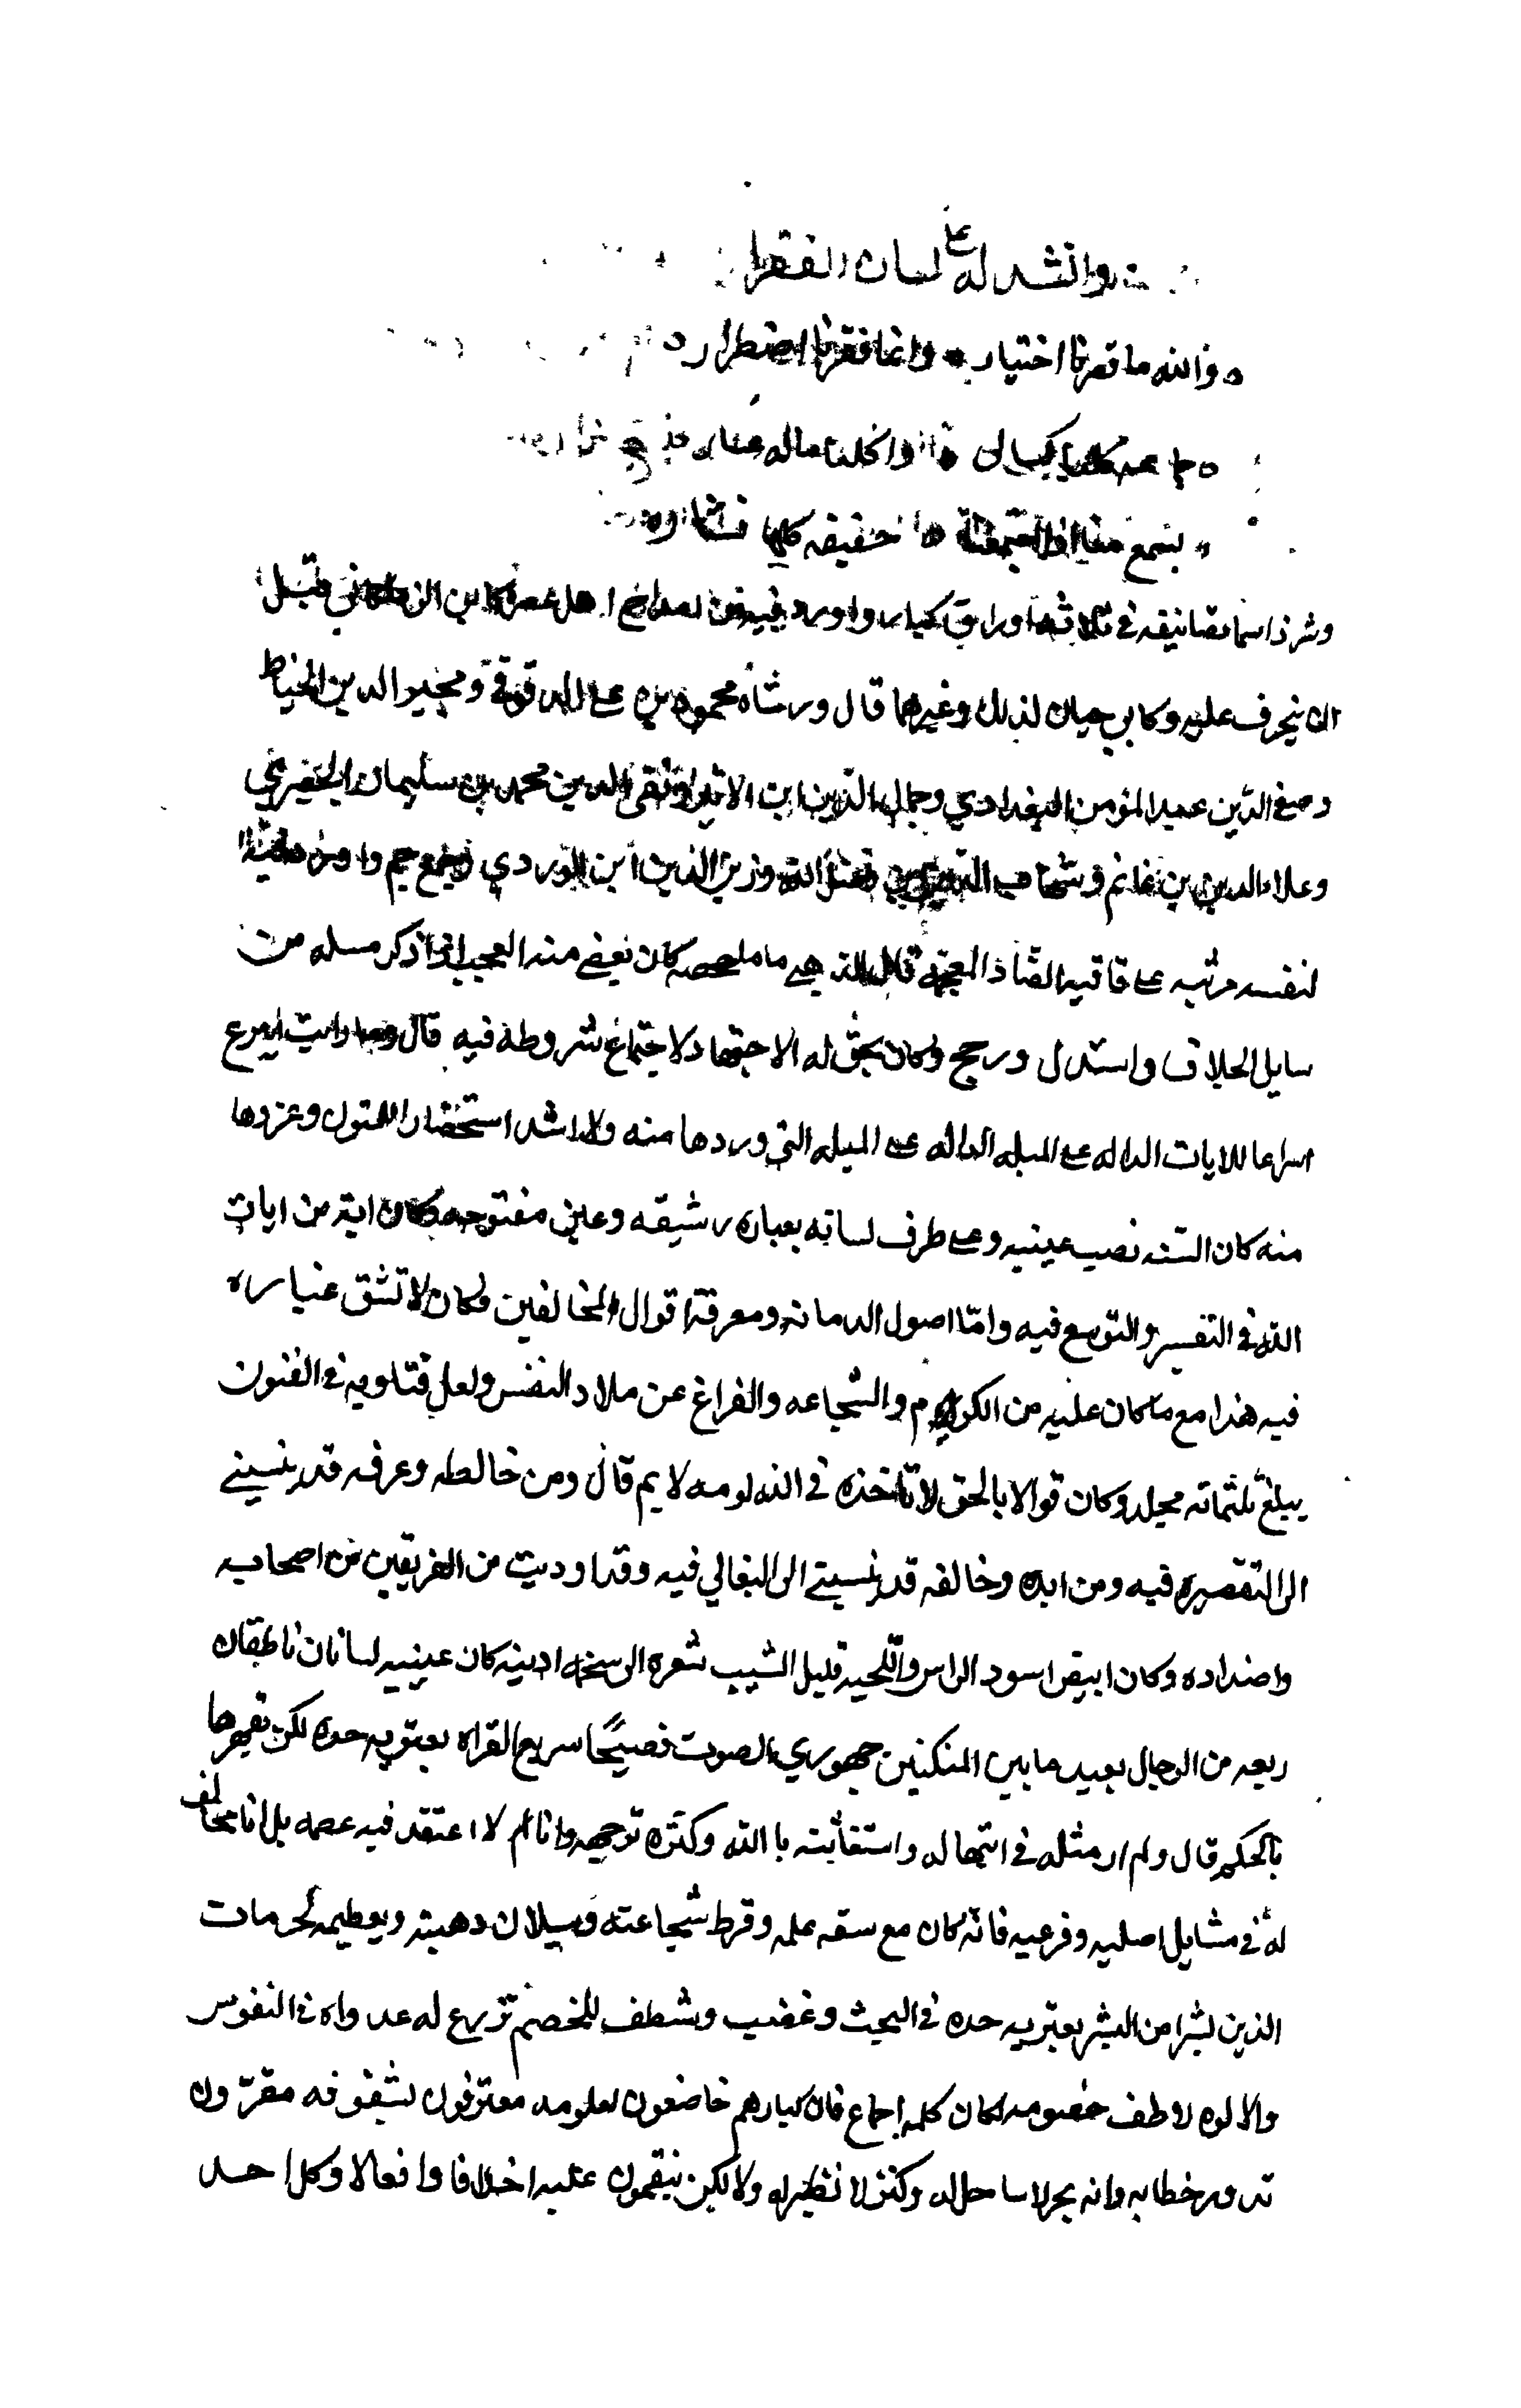 وانشد له على لسان الفقرا
والله ما فقرنا اختيار وانما فقرنا اضطرار
جماعه كلنا كسالى واكلنا ماله عيار
يسمع منا اذا اجتمعنا حقيقه كلها فشار
وسرد اسما تصانيفه في ثلاثة اوراق كبار واورد فيه من امداح اهل عصره كابن الزملكاني قبل
ان ينحرف عليه وكابي حيان لذلك وغيرهما قال ورثاه محمود بن على الدقوقي ومجير الدين الخياط
وصفي الدين عبد المؤمن البغدادي وجمال الدين ابن الاثير وتقي الدين محمد بن سليمان الجعبري
وعلاء الدين بن غانم وشهاب الدين بن فضل الله وزين الدين ابن الوردي وجمع جم واورد
لنفسه مرثيه على قافيه الضاد المعجمه قال الذهبي ما ملخصه كان يقضى منه العجب اذا ذكر مسله من
سايل الخلاف واستدل ورجح وكان يحق له الاجتهاد لاجتماع شروطه فيه قال وما رايت اسرع
اسراعا للايات الداله على المسله الداله على المسله التي وردها منه ولا اشد استحضارا للمتون وعزوها
منه كان السنه نصب عينيه وعلى طرف لسانه بعباره رشيقه وعين مفتوحه وكان اية من ايات
الله في التفسير والتوسع فيه واما اصول الديانه ومعرفة اقوال المخالفين وكان لا تشق غباره
فيه هذا مع ما كان عليه من الكرم والشجاعه والفراغ عن ملاد النفس ولعل فتاويه في الفنون
يبلغ ثلثماته مجلد وكان قوالا بالحق لا تاخذه في الله لومه لايم قال ومن خالطه وعرفه قد ينسبني
الى التقصير فيه ومن ابده وخالفه قد ينسبني الى التغالي فيه وقد اوديت من الفريقين من اصحابه
واضداده وكان ابيض اسود الراس واللحيه قليل الشيب شعره الى سحمه ادينه كان عينيه لسانان ناطقان
ربعه من الرجال بعيد ما بين المنكبين جهوري الصوت فصيحا سريع القراه يعتريه حده لكن يقهرها
بالحكم قال ولم ار مثله في ابتهاله واستغاثته با الله وكثره توجهه وانا لم لا اعتقد فيه عصمه بل انا مخالف
له في مسايل اصليه وفرعيه فانه كان مع سعه علمه وفرط شجاعته وسيلان دهنه وتعظيمه لحرمات
الدين بشرا من البشر يعتريه حده في البحث وغضب وشطف للخصم تزرع له عداوه في النفوس
والا لوه لاطف خصومه لكان كلمه اجماع فان كبارهم خاضعون لعلومه معترفون بشفوفه مقرون
بندور خطابه وانه بحر لا ساحل له وكنز لا نظير له ولا لكن ينقمون عليه اخلاقا وافعالا وكل احد